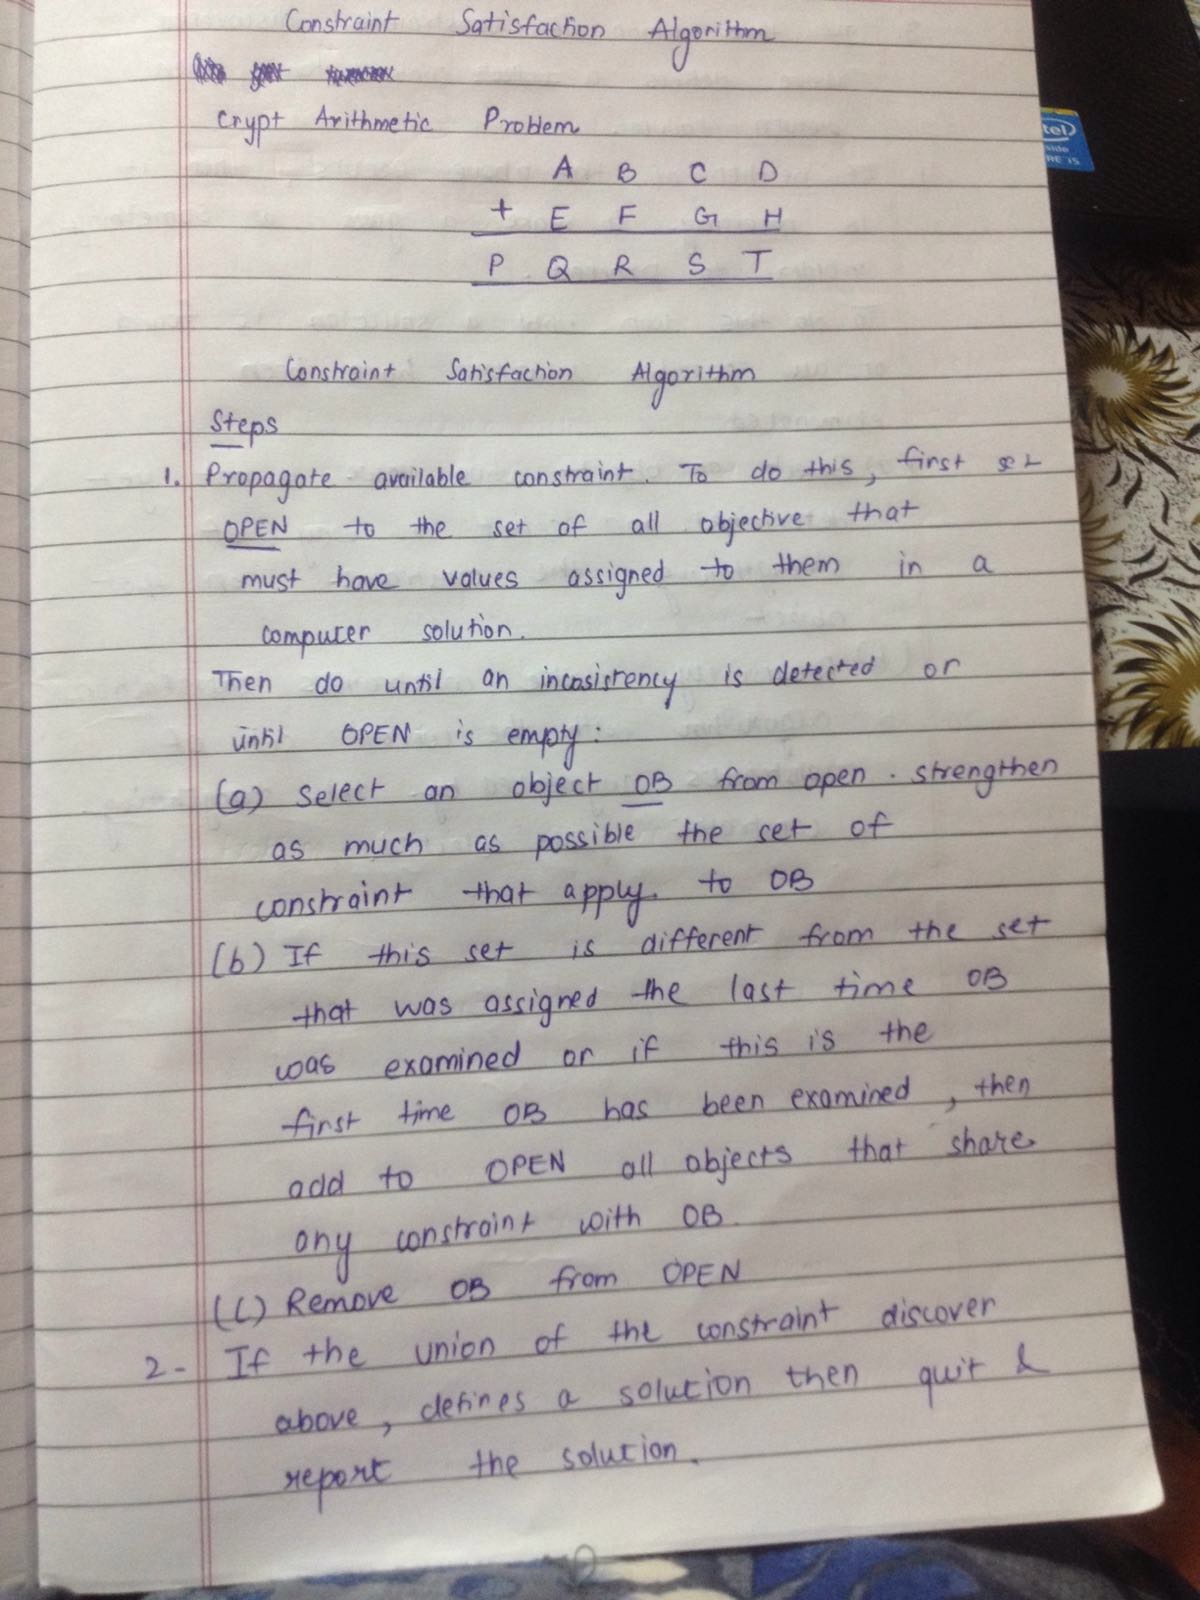 Constraint Satisfaction Algorithm
Crypt Arithmetic Problem
A B C D
+ E F G H
P Q R S T
Constraint Satisfaction Algorithm
Steps
1. Propagate available constraint. To do this, first set
OPEN to the set of all objective that
must have values assigned to them in a
computer solution.
Then do until an incosistency is detected or
until OPEN is empty:
(a) Select an object OB from open. strengthen
as much as possible the set of
constraint that apply. to OB
(b) If this set is different from the set
that was assigned the last time OB
was examined or if this is the
first time OB has been examined, then
add to OPEN all objects that share
any constraint with OB.
(c) Remove OB from OPEN
2- If the union of the constraint discover
above, defines a solution then quit &
report the solution.
tel)
side
RE i5